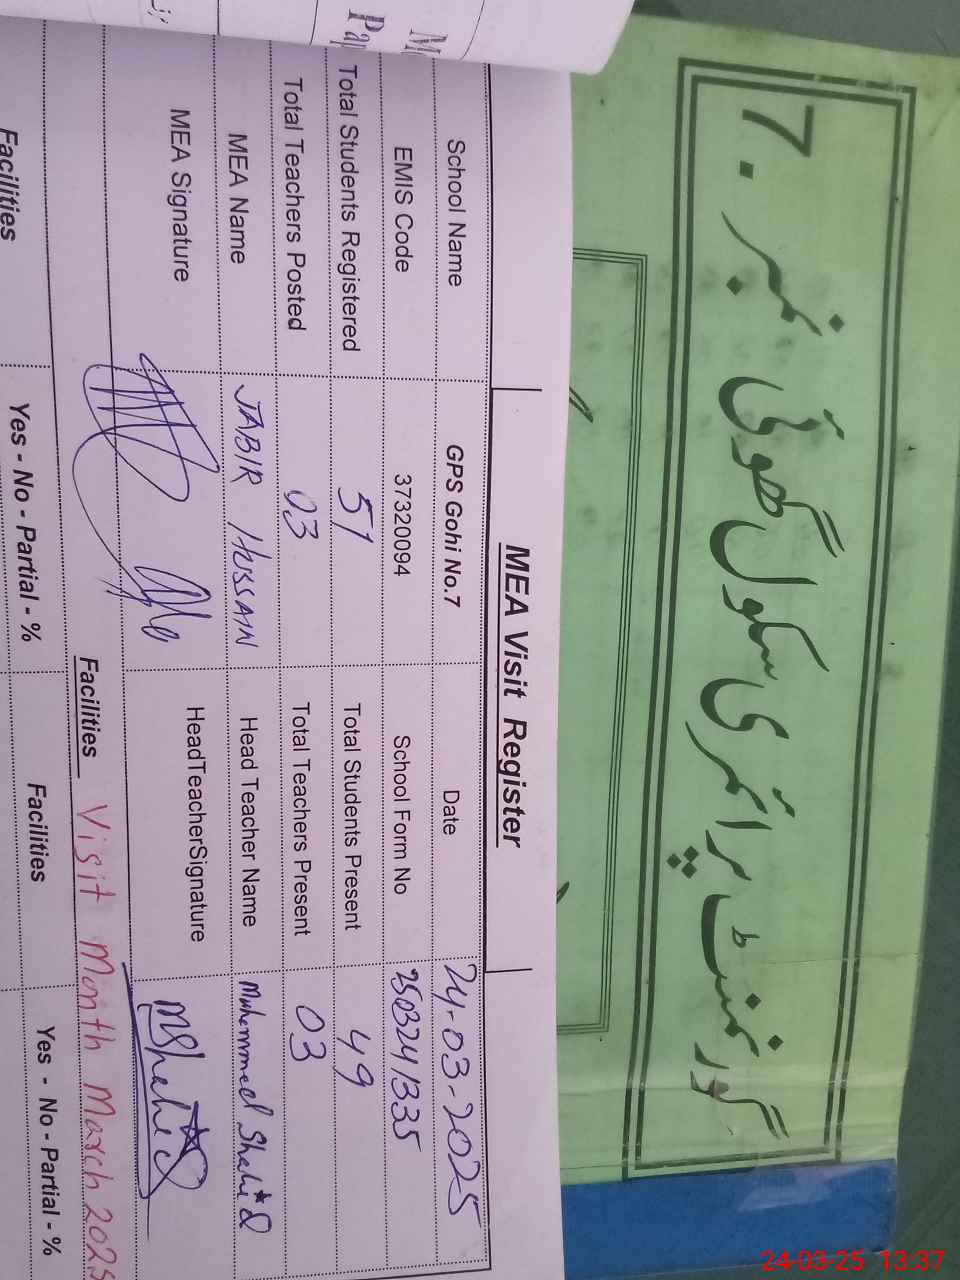 گورنمنٹ پرائمری سکول گھوئی نمبر 7.
MEA Visit Register
School Name GPS Gohi No.7 Date 24-03-2025
EMIS Code 37320094 School Form No 2503241335
Total Students Registered 51 Total Students Present 49
Total Teachers Posted 03 Total Teachers Present 03
MEA Name JABIR HUSSAIN Head Teacher Name Muhammed Shahid
MEA Signature HeadTeacherSignature MShahid
Facilities Visit Month March 2025
Facilities Yes - No - Partial - % Facilities Yes - No - Partial - %
24-03-25 13:37